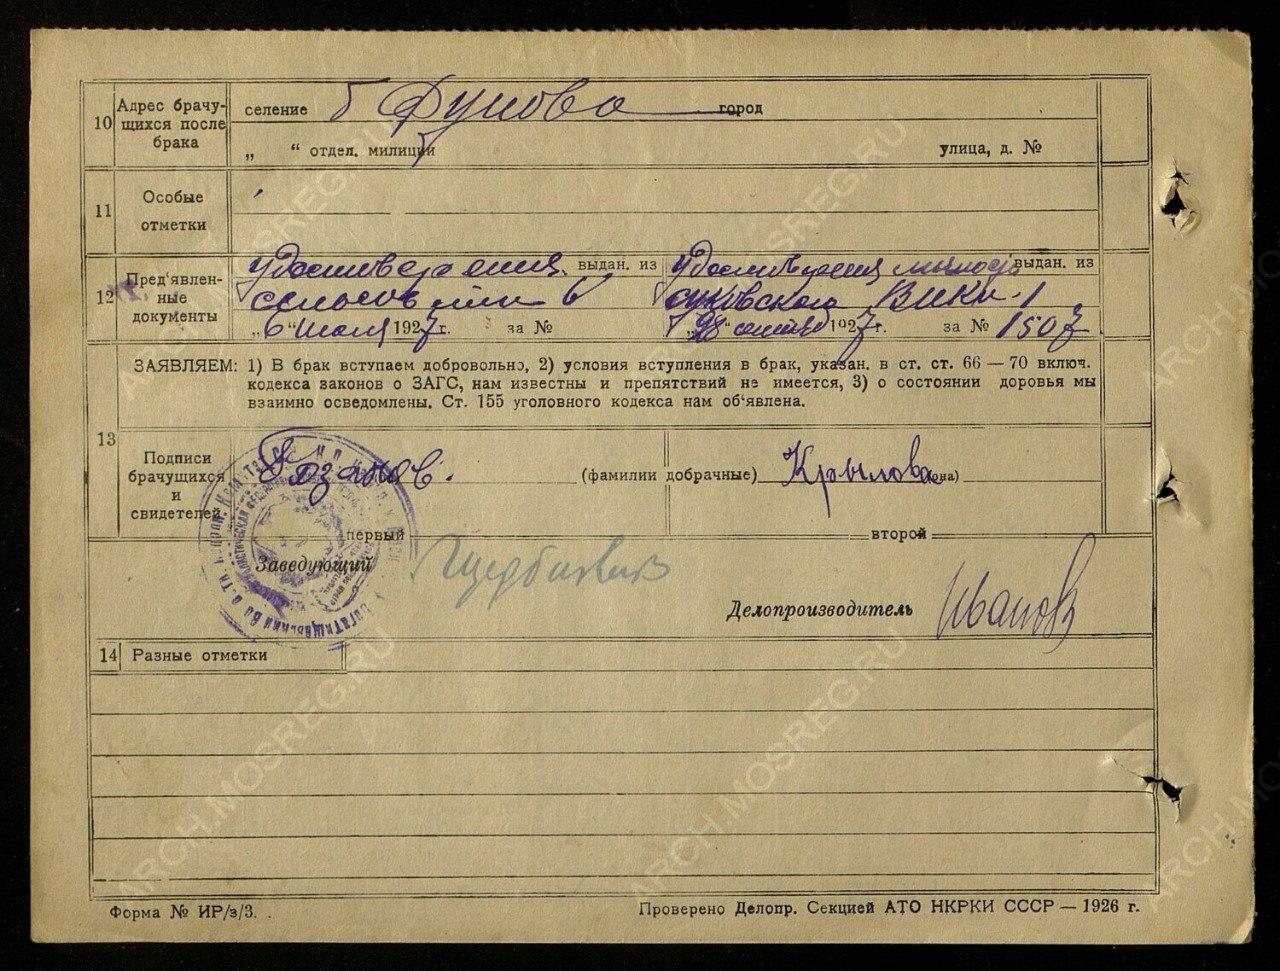 10 Адрес брачу- селение город
щихся после
брака „ “ отдел. милиции улица, д. №
11 Особые
отметки
12 Пред'явлен- удостоверения выдан. из удостоверения выдан. из
ные
документы „6“ июля 1927 г. за № 1927 г. за № 1507
13 ЗАЯВЛЯЕМ: 1) В брак вступаем добровольно, 2) условия вступления в брак, указан. в ст. ст. 66 — 70 включ.
кодекса законов о ЗАГС, нам известны и препятствий не имеется, 3) о состоянии доровья мы
взаимно осведомлены. Ст. 155 уголовного кодекса нам об'явлена.
Подписи
брачущихся (фамилии добрачные) Крылова (она)
и
свидетелей
первый второй
Заведующий
Делопроизводитель Иванов
14 Разные отметки
Форма № ИР/з/3. Проверено Делопр. Секцией АТО НКРКИ СССР — 1926 г.
ARCH.MOSREG.RU